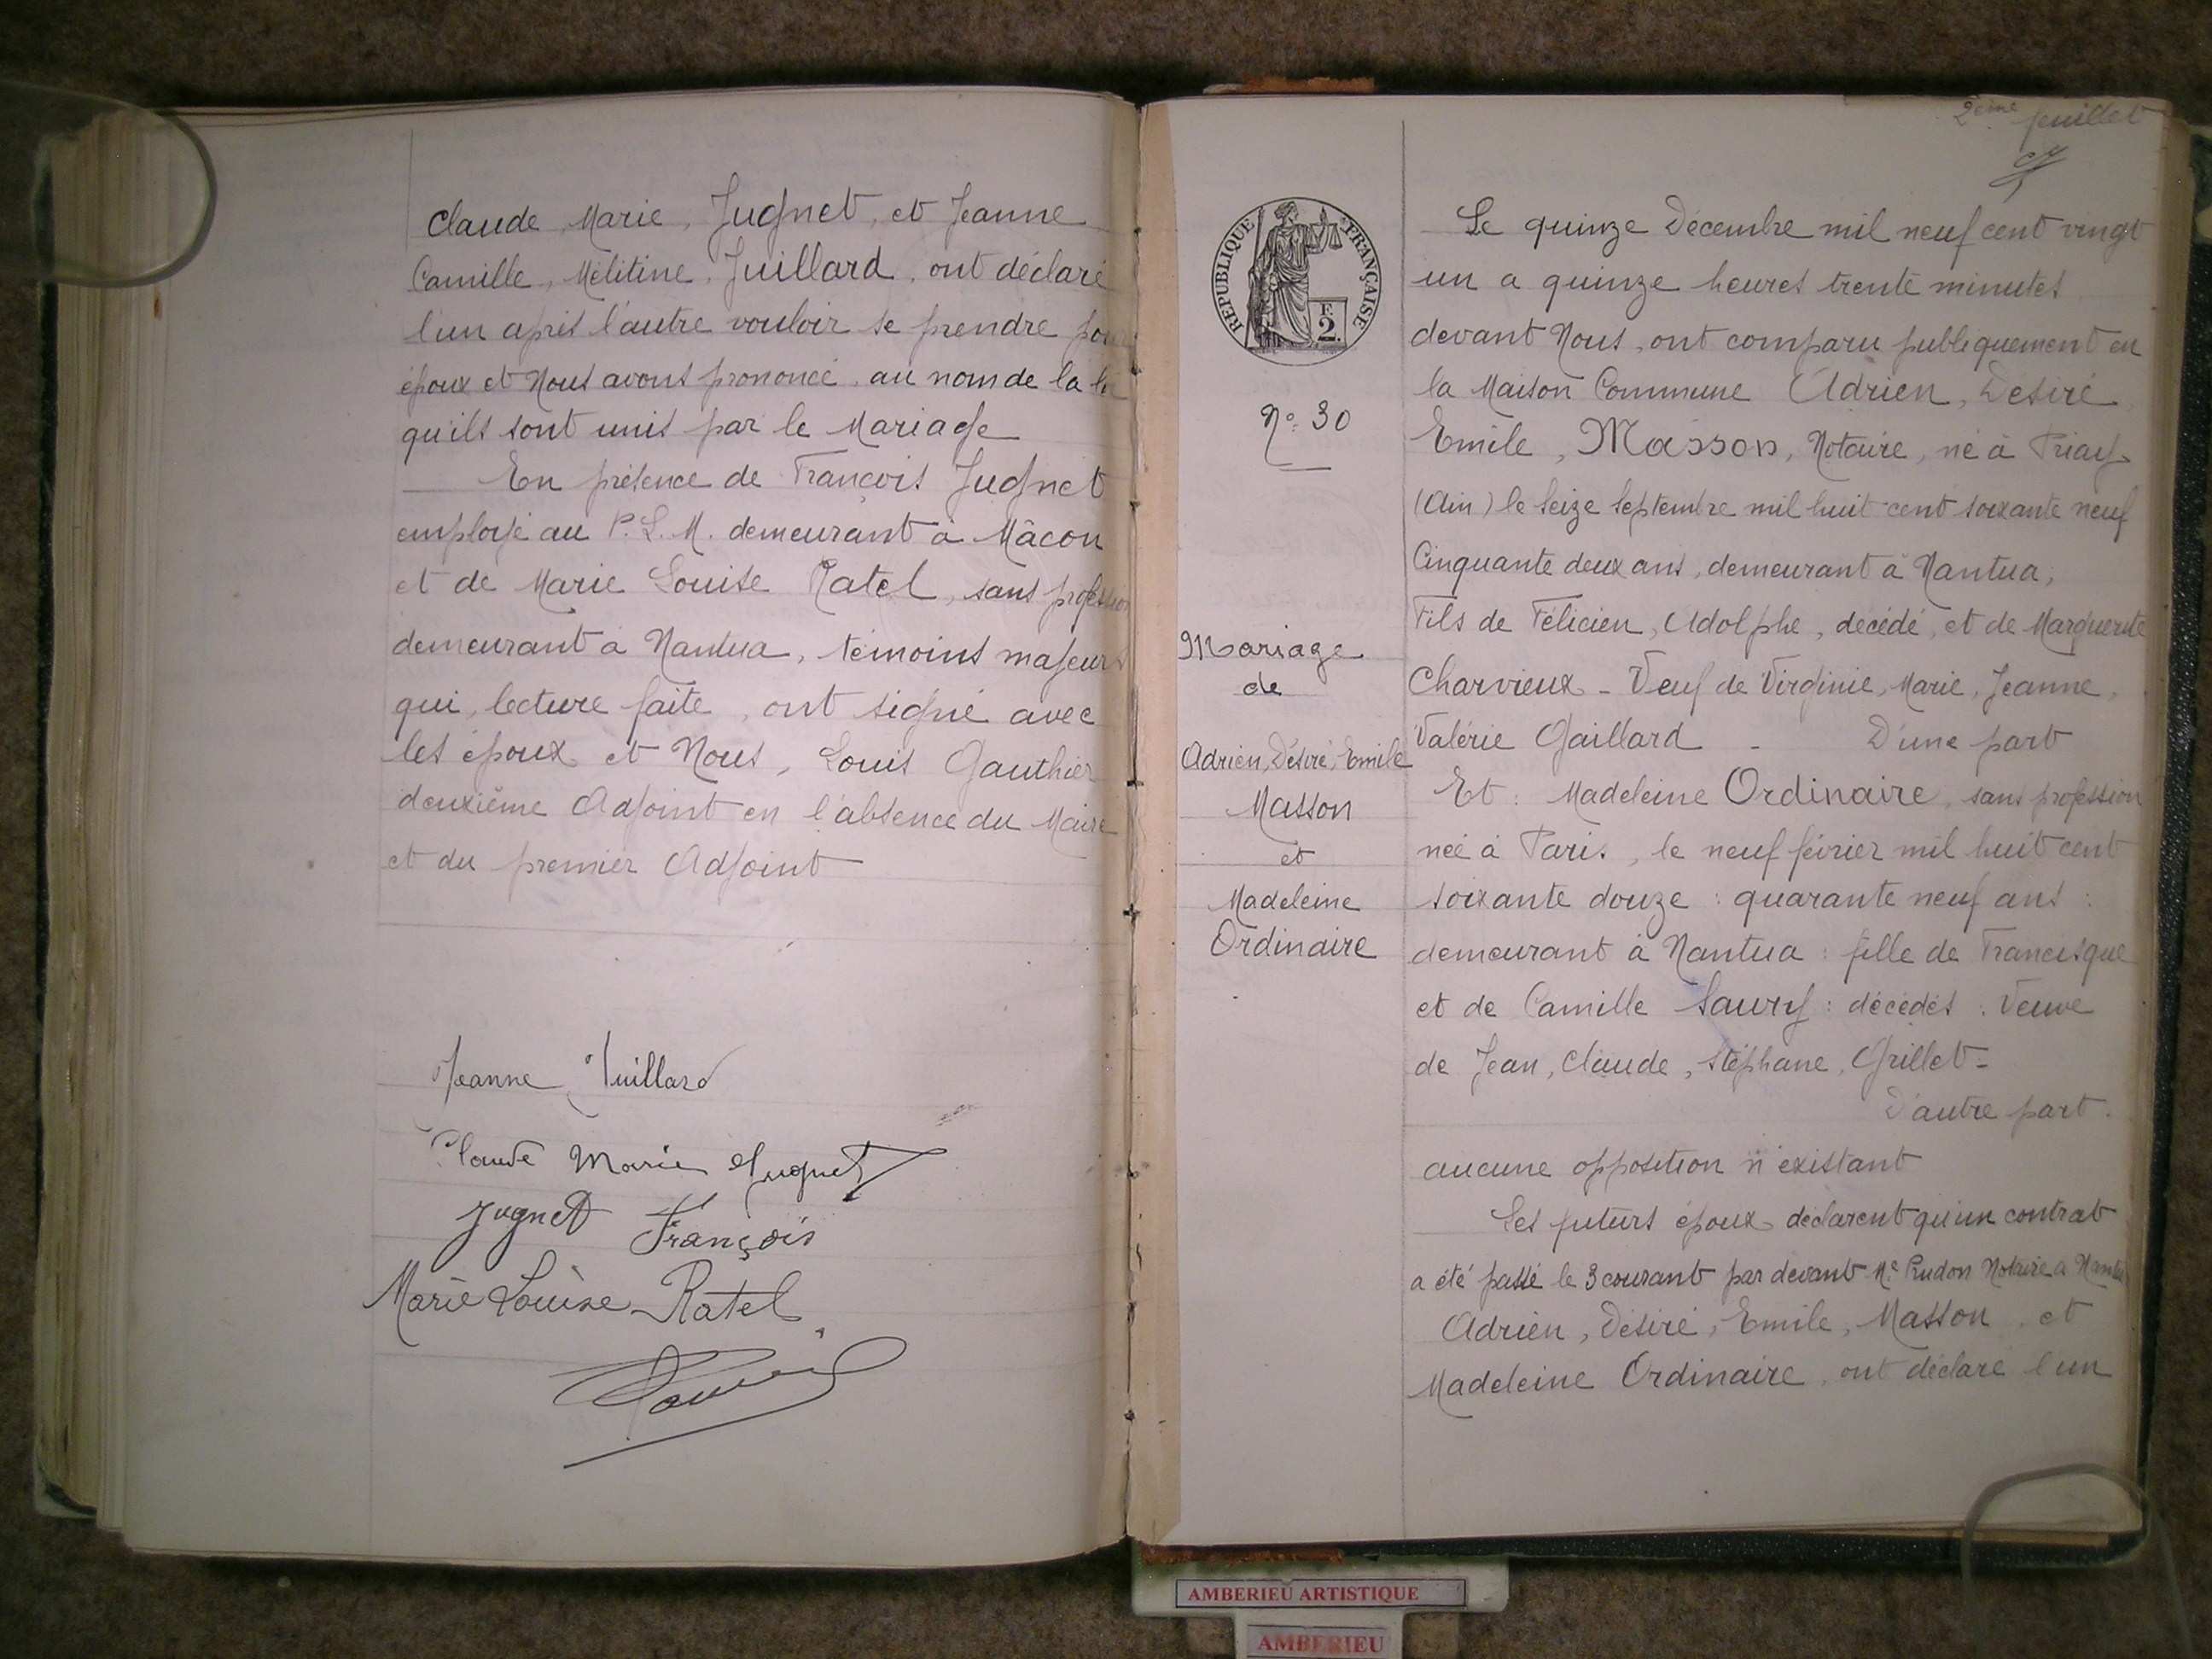 Claude, Marie, Jugnet, et Jeanne
Camille, Mélitine, Juillard, ont déclaré
l'un après l'autre vouloir se prendre pour
époux et Nous avons prononcé, au nom de la loi
qu'ils sont unis par le Mariage
En présence de François Jugnet
employé au P.L.M. demeurant à Mâcon
et de Marie Louise Ratel, sans profession
demeurant à Nantua, témoins majeurs
qui, lecture faite, ont signé avec
les époux et Nous, Louis Gauthier
deuxième Adjoint en l'absence du Maire
et du premier Adjoint
Jeanne Juillard
Claude Marie Jugnet
Jugnet François
Marie Louise Ratel
2ème feuillet
RÉPUBLIQUE FRANÇAISE
F.
2.
No 30
Mariage
de
Adrien, Désiré, Emile
Masson
et
Madeleine
Ordinaire
Le quinze Décembre mil neuf cent vingt
un a quinze heures trente minutes
devant Nous, ont comparu publiquement en
la Maison Commune Adrien, Désiré
Emile, Masson, Notaire, né à Priay
(Ain) le seize septembre mil huit cent soixante neuf
Cinquante deux ans, demeurant à Nantua,
Fils de Félicien, Adolphe, décédé, et de Marguerite
Charvieux - Veuf de Virginie, Marie, Jeanne,
Valérie Gaillard - D'une part
Et : Madeleine Ordinaire, sans profession
née à Paris, le neuf février mil huit cent
soixante douze : quarante neuf ans :
demeurant à Nantua : fille de Francisque
et de Camille Saury : décédés : Veuve
de Jean, Claude, Stéphane, Grillet -
D'autre part.
aucune opposition n'existant
Les futurs époux déclarent qu'un contrat
a été passé le 3 courant par devant Me Prudon Notaire a Nantua
Adrien, Désiré, Emile, Masson, et
Madeleine Ordinaire, ont déclaré l'un
AMBERIEU ARTISTIQUE
AMBERIEU